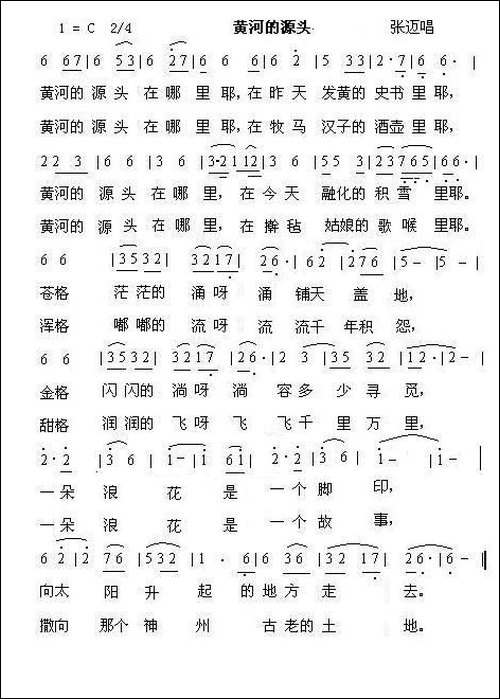 1 = C 2/4 黄河的源头 张迈唱
6 6 7 | 6 5 3 | 6 2 7 | 6 - | 6 6 | 6 2 | 5 3 3 | 2 · 7 | 6 · |
黄河的 源 头 在 哪 里 耶,在 昨 天 发黄的 史书 里 耶,
黄河的 源 头 在 哪 里 耶,在 牧 马 汉子的 酒壶 里 耶,
2 2 3 | 6 6 | 3 6 | 3·2 1 1 2 | 3 6 | 5 5 3 | 2 3 7 6 5 | 6 6 · |
黄河的 源 头 在 哪 里, 在 今 天 融化的 积 雪 里耶。
黄河的 源 头 在 哪 里, 在 擀 毡 姑娘的 歌 喉 里耶。
6 6 | 3 5 3 2 | 3 2 | 3 2 1 7 | 2 6 · | 6 2 | 2 7 6 | 5 - | 5 - |
苍格 茫 茫的 涌 呀 涌 铺天 盖 地,
浑格 嘟 嘟的 流 呀 流 流千 年积 怨,
6 6 | 3 5 3 2 | 3 2 | 3 2 1 7 | 2 6 · | 2 3 | 3 5 3 2 | 1 2 · | 2 - |
金格 闪 闪的 淌 呀 淌 容多 少 寻 觅,
甜格 润 润的 飞 呀 飞 飞千 里 万 里,
2 · 2 | 3 6 | 1 - | 1 - | 6 1 | 2 · 2 | 3 6 | 1 - | 1 - |
一朵 浪 花 是 一 个 脚 印,
一朵 浪 花 是 一 个 故 事,
6 2 | 2 | 7 6 | 5 3 2 | 1 · 6 | 6 6 | 6 3 6 | 3 2 1 7 | 2 6 · | 6 - ‖
向太 阳 升 起 的 地 方 走 去。
撒向 那个 神 州 古 老的 土 地。